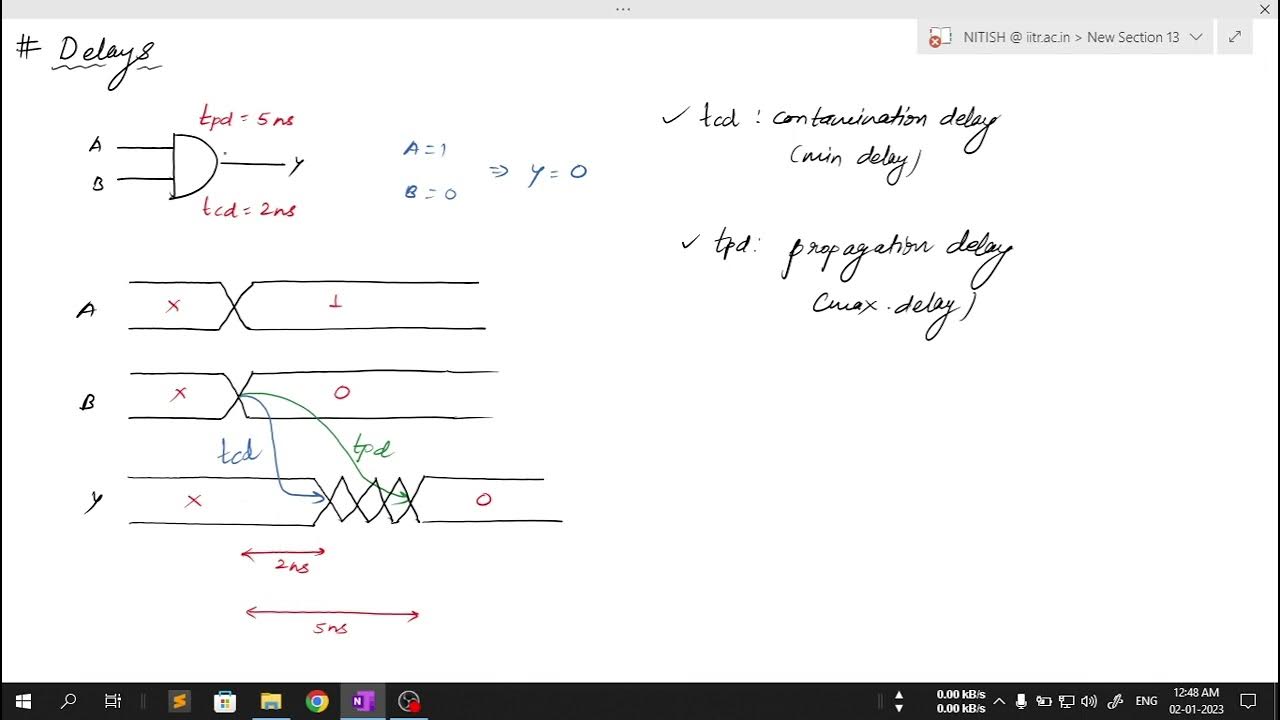 NITISH @ iitr.ac.in > New Section 13
# Delays
tpd = 5ns
A
B
Y
tcd = 2ns
A = 1
B = 0
⇒ Y = 0
✓ tcd : contamination delay
(min delay)
✓ tpd : propagation delay
(max. delay)
A
X
1
B
X
0
tcd
tpd
Y
X
0
2ns
5ns
0.00 kB/s
0.00 kB/s
ENG
12:48 AM
02-01-2023